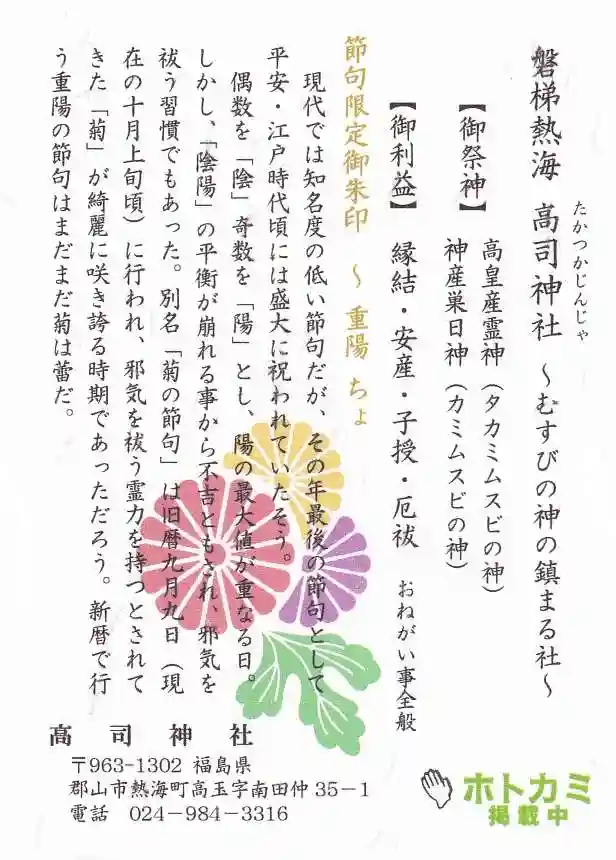 磐梯熱海 高司神社 ～むすびの神の鎮まる社～
たかつかじんじゃ
【御祭神】
高皇産霊神（タカミムスビの神）
神産巣日神（カミムスビの神）
【御利益】 縁結・安産・子授・厄祓 おねがい事全般
節句限定御朱印 ～ 重陽 ちょ
現代では知名度の低い節句だが、その年最後の節句として
平安・江戸時代頃には盛大に祝われていたそう。
偶数を「陰」奇数を「陽」とし、陽の最大値が重なる日。
しかし、「陰陽」の平衡が崩れる事から不吉ともされ、邪気を
祓う習慣でもあった。別名「菊の節句」は旧暦九月九日（現
在の十月上旬頃）に行われ、邪気を祓う霊力を持つとされて
きた「菊」が綺麗に咲き誇る時期であっただろう。新暦で行
う重陽の節句はまだまだ菊は蕾だ。
高司神社
〒963-1302 福島県
郡山市熱海町高玉字南田仲35－1
電話 024-984-3316
ホトカミ
掲載中